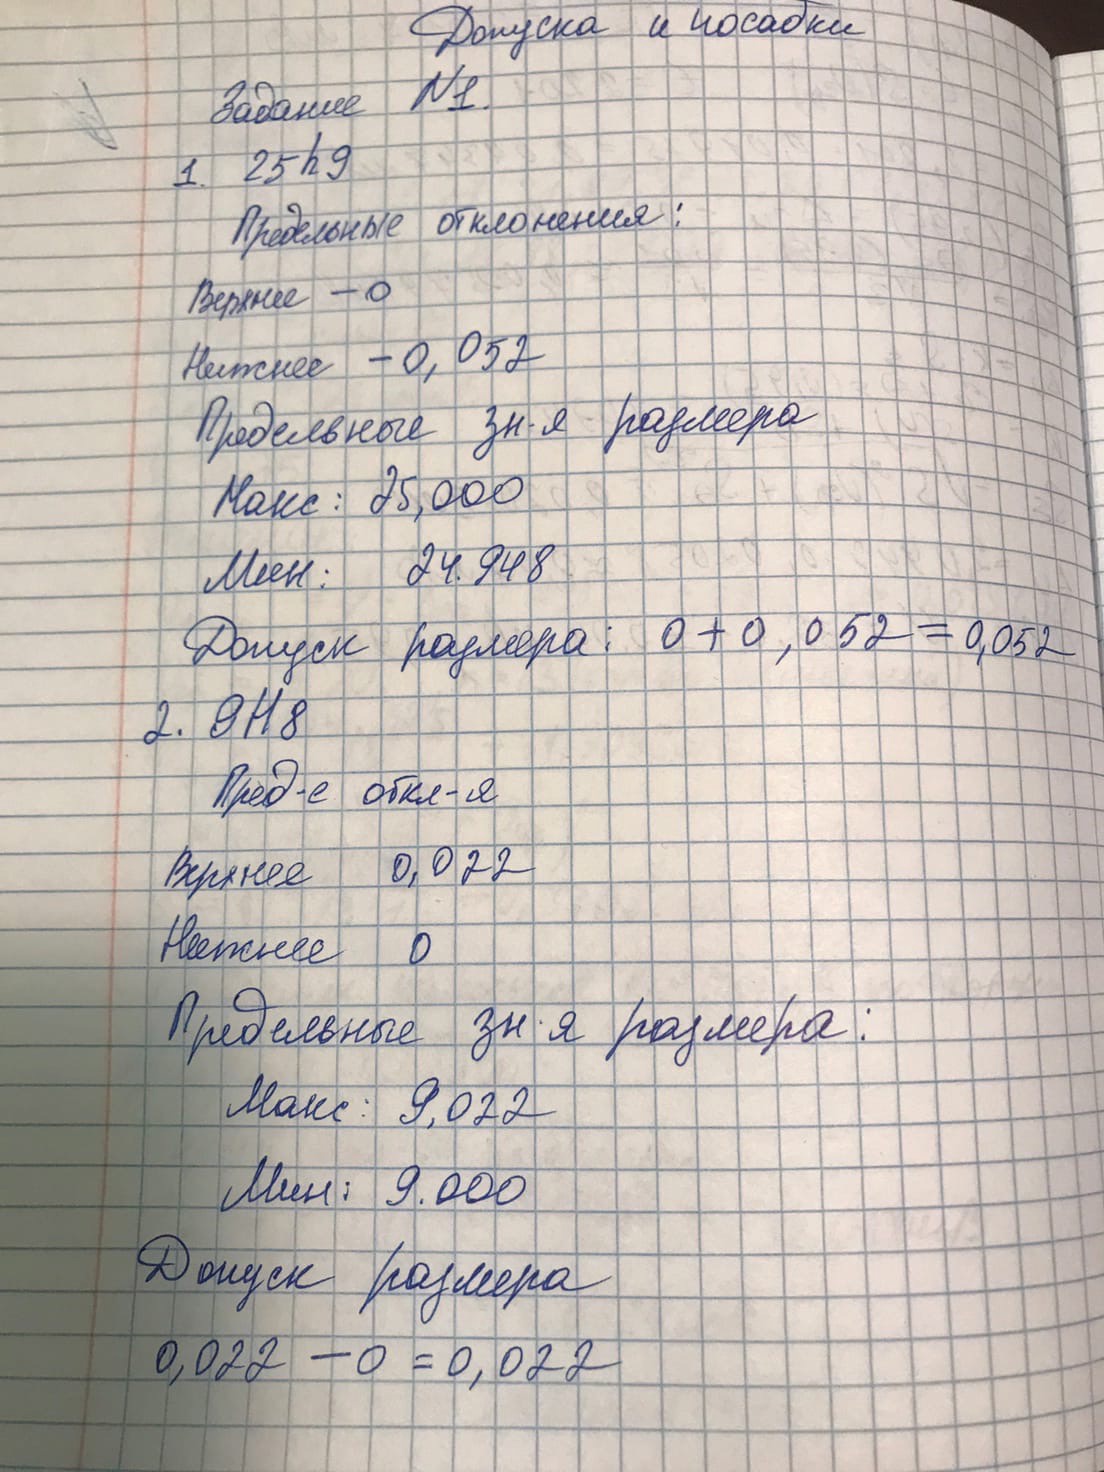 Допуска и посадки
Задание №1.
1. 25h9
Предельные отклонения:
Верхнее – 0
Нижнее – 0,052
Предельные зн-я размера
Макс: 25,000
Мин: 24.948
Допуск размера: 0+0,052=0,052
2. 9H8
Пред-е откл-я
Верхнее 0,022
Нижнее 0
Предельные зн-я размера:
Макс: 9,022
Мин: 9.000
Допуск размера
0,022 – 0 = 0,022